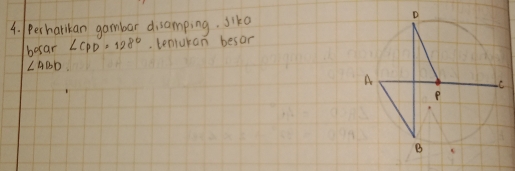 4. Perhatikan gambar disamping. Jika
besar ∠CPD = 128°. tentukan besar
∠ABD.
D
A
P
C
B